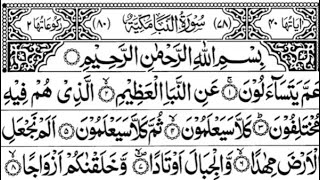 اٰیَاتُهَا ۴۰ (۷۸) سُوْرَةُ النَّبَاِ مَكِّيَّةٌ (۸۰) رُكُوْعَاتُهَا ۲
بِسْمِ اللّٰهِ الرَّحْمٰنِ الرَّحِيْمِ
عَمَّ يَتَسَآءَلُوْنَ ۚ عَنِ النَّبَاِ الْعَظِيْمِ ۙ الَّذِيْ هُمْ فِيْهِ
مُخْتَلِفُوْنَ ؕ كَلَّا سَيَعْلَمُوْنَ ۙ ثُمَّ كَلَّا سَيَعْلَمُوْنَ ۝ اَلَمْ نَجْعَلِ
الْاَرْضَ مِهٰدًا ۙ وَّالْجِبَالَ اَوْتَادًا ۪ۙ وَّخَلَقْنٰكُمْ اَزْوَاجًا ۙ